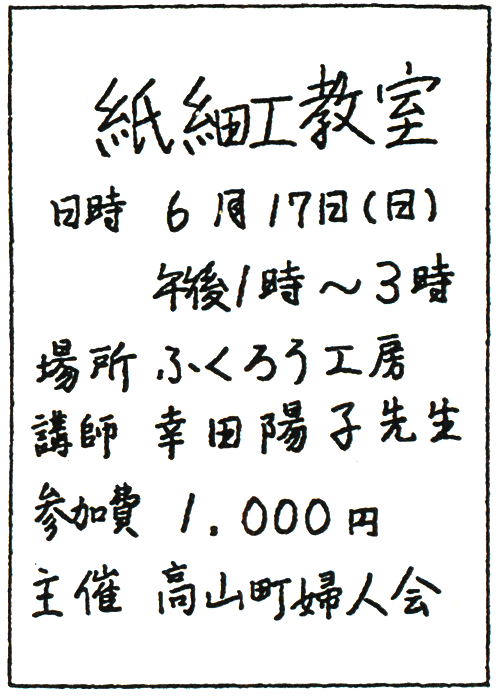 紙細工教室
日時 6月17日(日)
午後1時～3時
場所 ふくろう工房
講師 幸田陽子先生
参加費 1.000円
主催 高山町婦人会